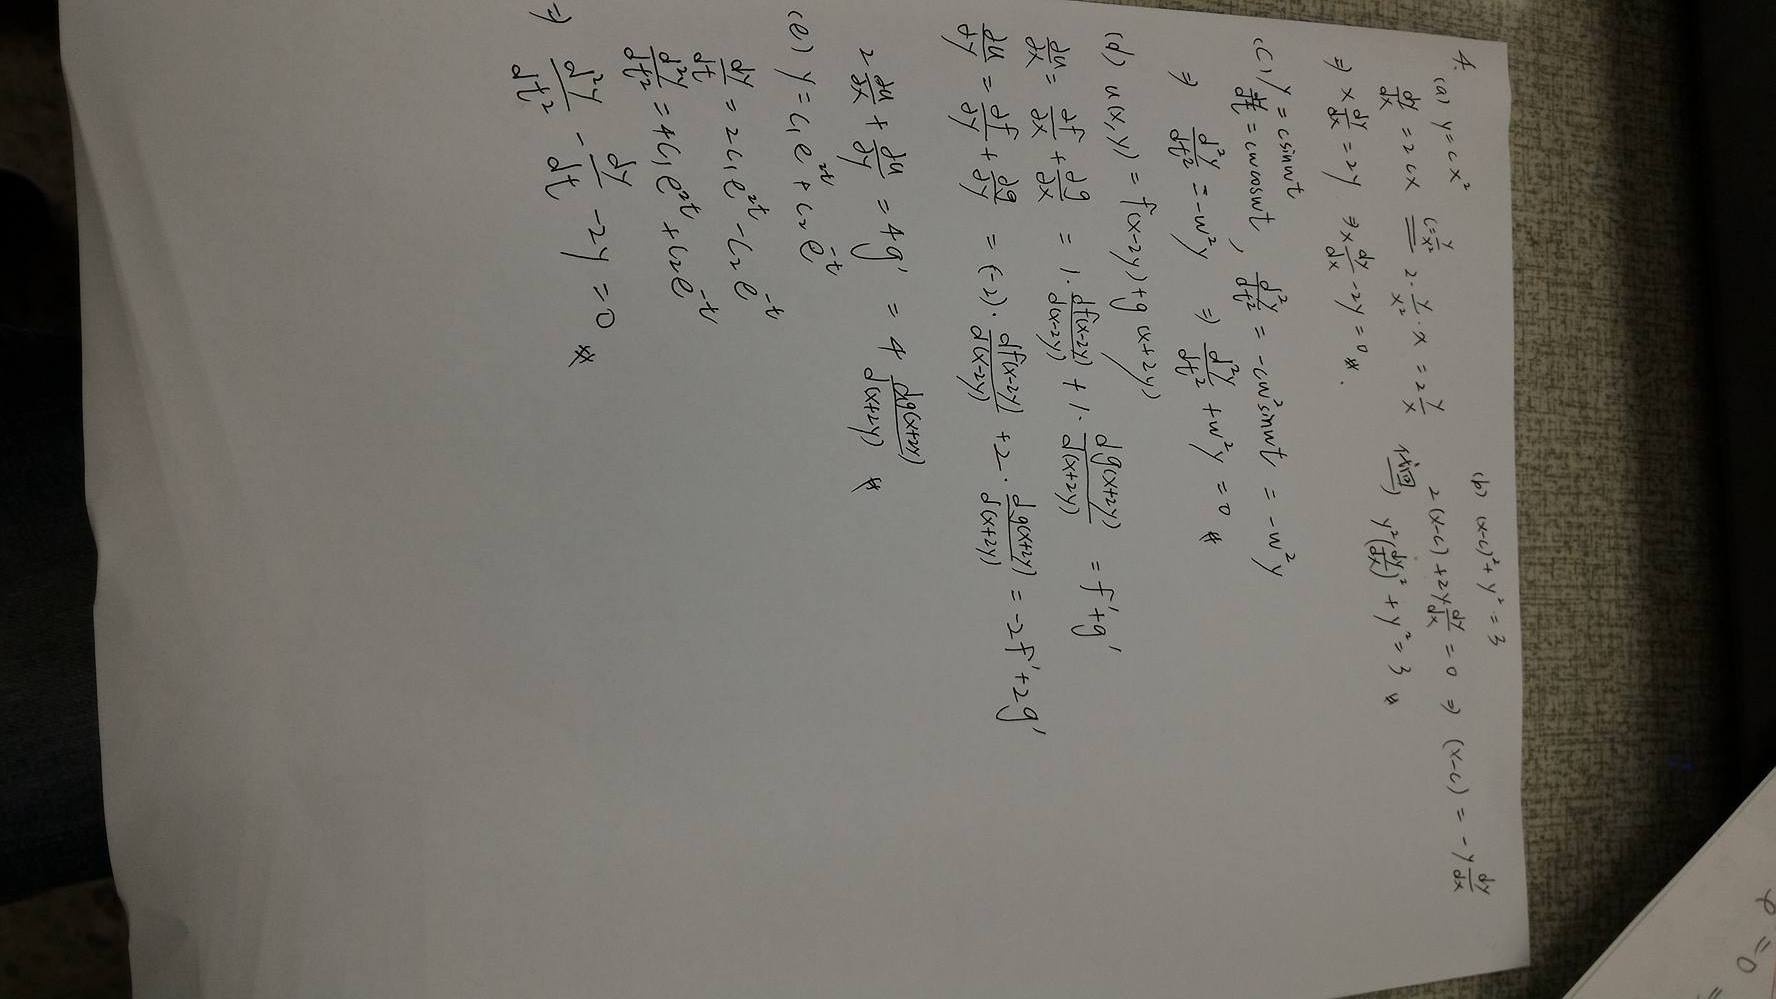 e =0 =
4.
(a) y=cx²
dy/dx = 2cx =(c=y/x²)= 2·y/x²·x = 2y/x
⇒ x dy/dx = 2y ⇒ x dy/dx - 2y = 0 ※.
(b) (x-c)²+y²=3
2(x-c)+2y dy/dx = 0 ⇒ (x-c) = -y dy/dx
代回⇒ y²(dy/dx)²+y²=3 ※
(c) y = c sinwt
dy/dt = cw coswt, d²y/dt² = -cw²sinwt = -w²y
⇒ d²y/dt² = -w²y ⇒ d²y/dt² + w²y = 0 ※
(d) u(x,y) = f(x-2y)+g(x+2y)
∂u/∂x = ∂f/∂x + ∂g/∂x = 1·df(x-2y)/d(x-2y) + 1·dg(x+2y)/d(x+2y) = f'+g'
∂u/∂y = ∂f/∂y + ∂g/∂y = (-2)·df(x-2y)/d(x-2y) + 2·dg(x+2y)/d(x+2y) = -2f'+2g'
2 ∂u/∂x + ∂u/∂y = 4g' = 4 dg(x+2y)/d(x+2y) ※
(e) y = c₁e^2t + c₂e^-t
dy/dt = 2c₁e^2t - c₂e^-t
d²y/dt² = 4c₁e^2t + c₂e^-t
⇒ d²y/dt² - dy/dt - 2y = 0 ※